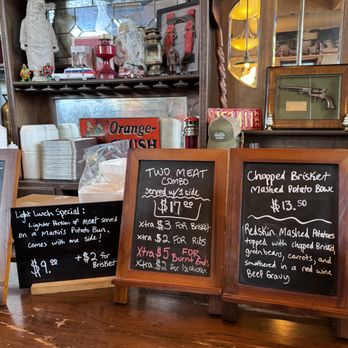 Orange-
CRUSH
Light Lunch Special:
Lighter Portion of meat served
on a Martin's Potato Bun,
comes with one side!
$9.00
+$2 for
Brisket
TWO MEAT
COMBO
served w/1 side
$17.00
xtra $3 FOR Brisket
xtra $2 FOR Ribs
xtra $5 FOR
Burnt Ends
xtra $2 for 1/2 chicken
Chopped Brisket
Mashed Potato Bowl
$13.50
Redskin Mashed Potatoes
topped with chopped Brisket,
green beans, carrots, and
smothered in a red wine
Beef Gravy